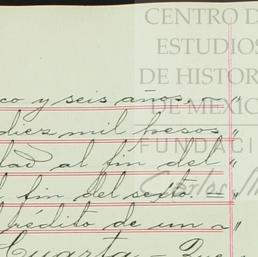 CENTRO D
ESTUDIOS
DE HISTOR
DE MÉXIC
FUNDACI
Carlos
co y seis años. — "
diez mil pesos "
dad al fin del "
l fin del sexto. = "
rédito de un — "
Cuarta — Que